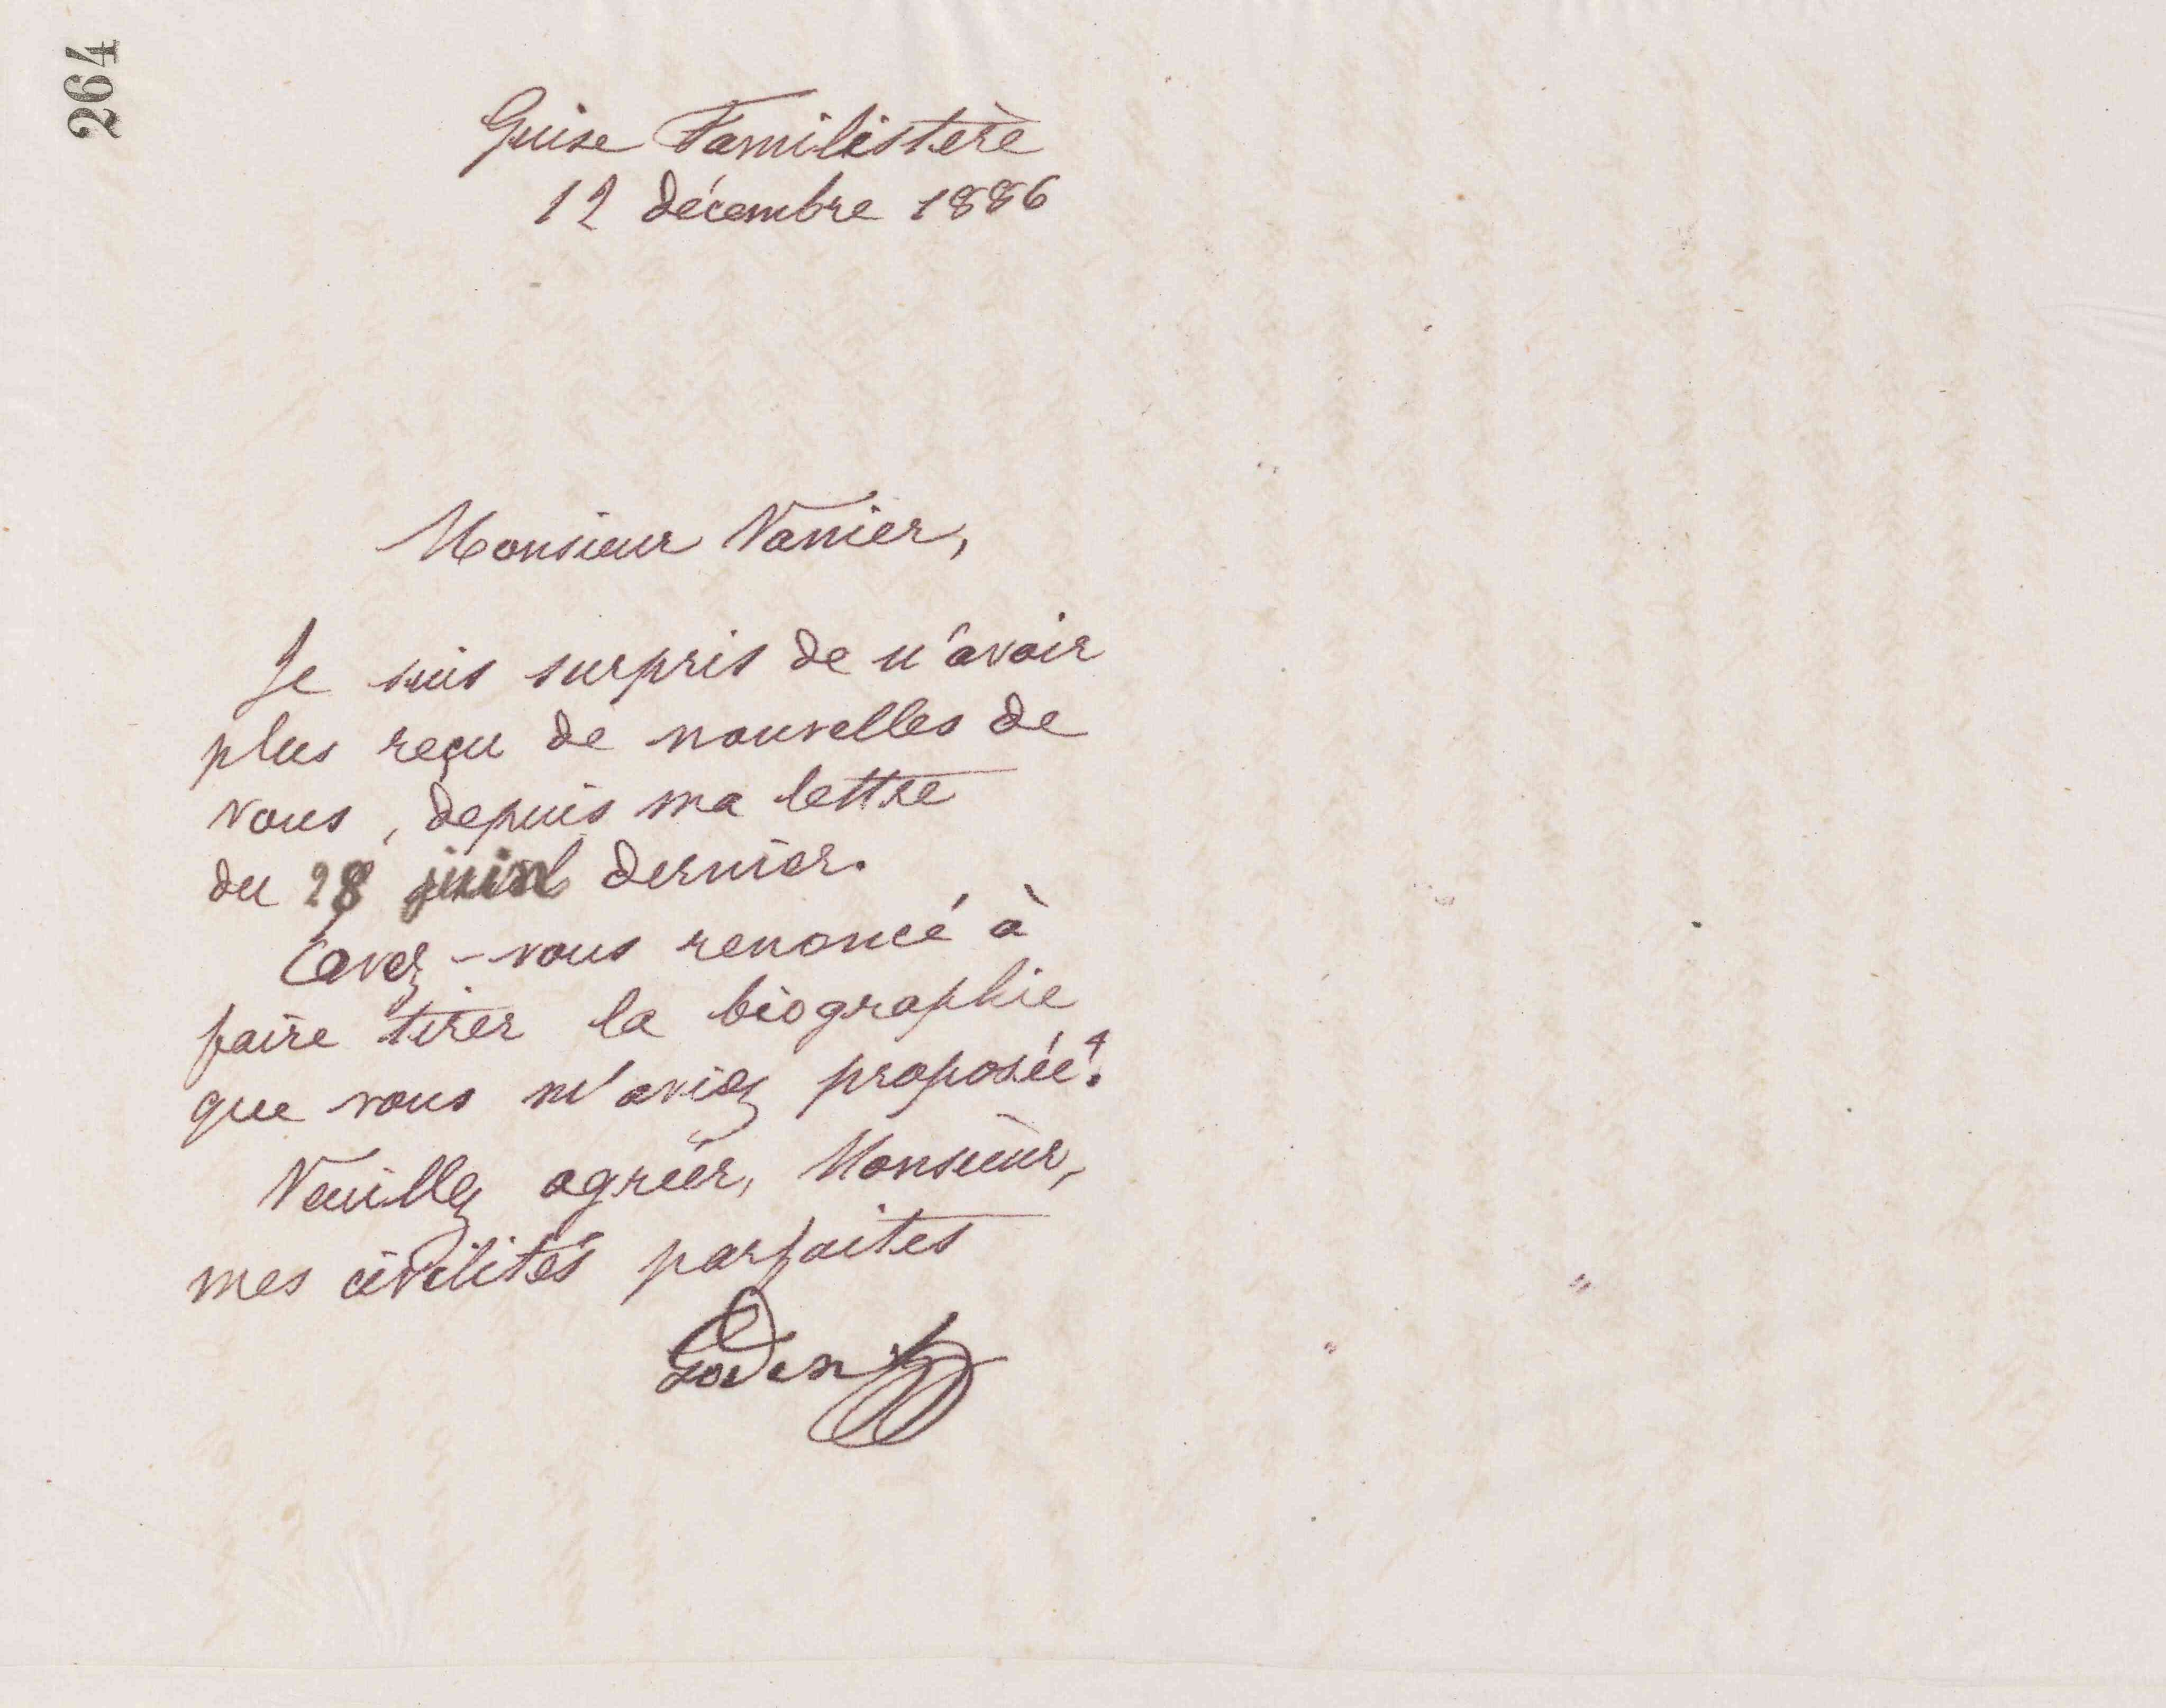 264
Guise Familistère
12 décembre 1886
Monsieur Vanier,
Je suis surpris de n'avoir
plus reçu de nouvelles de
vous, depuis ma lettre
du 28 dernier.
Avez-vous renoncé à
faire tirer la biographie
que vous m'aviez proposée?
Veuillez agréer, Monsieur,
mes civilités parfaites
Godin